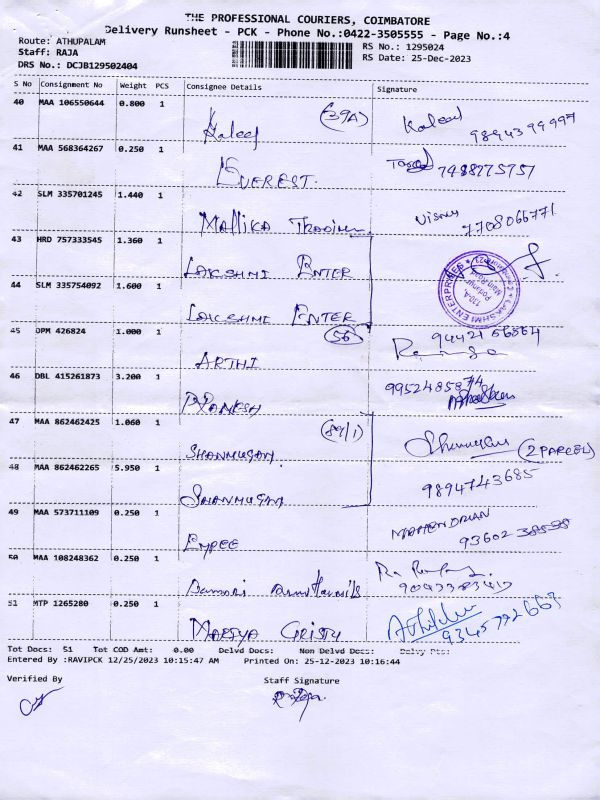 THE PROFESSIONAL COURIERS, COIMBATORE
Delivery Runsheet - PCK - Phone No.:0422-3505555 - Page No.:4
Route: ATHUPALAM
RS No.: 1295024
Staff: RAJA
RS Date: 25-Dec-2023
DRS No.: DCJB129502404
S No Consignment No Weight PCS Consignee Details Signature
40 MAA 106550644 0.800 1
(39A)
Kaleel
41 MAA 568364267 0.250 1
EVEREST.
7488775757
42 SLM 335701245 1.440 1
MALLIKA
7708066771
43 HRD 757333545 1.360 1
LAKSHMI ENTER
LAKSHMI ENTERPRISES
44 SLM 335754092 1.600 1
LAKSHMI ENTER
(56)
45 OPM 426824 1.000 1
ARTHI
46 DBL 415261873 3.200 1
47 MAA 862462425 1.060 1
(89/1)
SHANMUGAM.
(2 PARCEL)
48 MAA 862462265 5.950 1
SHANMUGAM
9894743685
49 MAA 573711109 0.250 1
EMPEE
50 MAA 108248362 0.250 1
51 MTP 1265280 0.250 1
Tot Docs: 51 Tot COD Amt: 0.00 Delvd Docs: Non Delvd Docs: Delvy Pts:
Entered By :RAVIPCK 12/25/2023 10:15:47 AM Printed On: 25-12-2023 10:16:44
Verified By Staff Signature